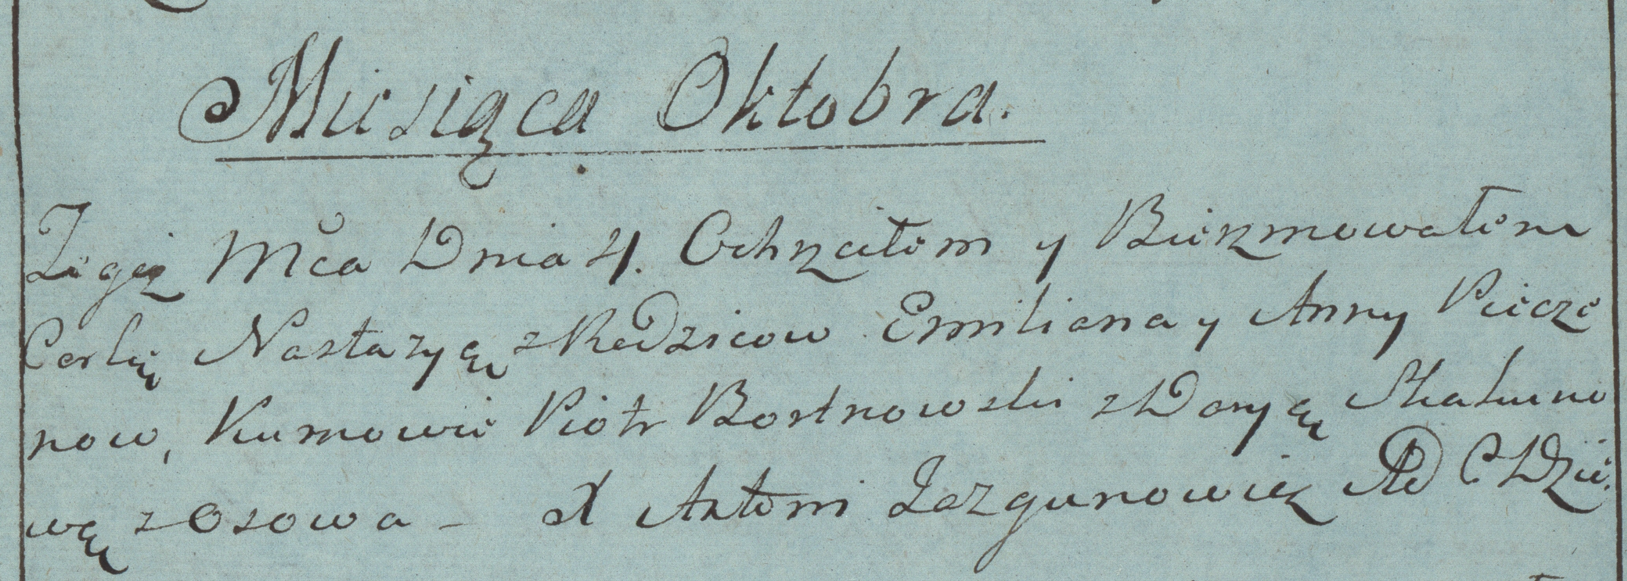 Miesiąca Oktobra.
Tegoż Mca Dnia 4. Ochrzciłem y Bierzmowałem
Corkę Nastazyą z Rodzicow Emiliana y Anny Piecze
now, Kumowie Piotr Bortnowski z Daryą Skakuno
wą z Osowa - X Antoni Jazgunowicz AD C Dzie.